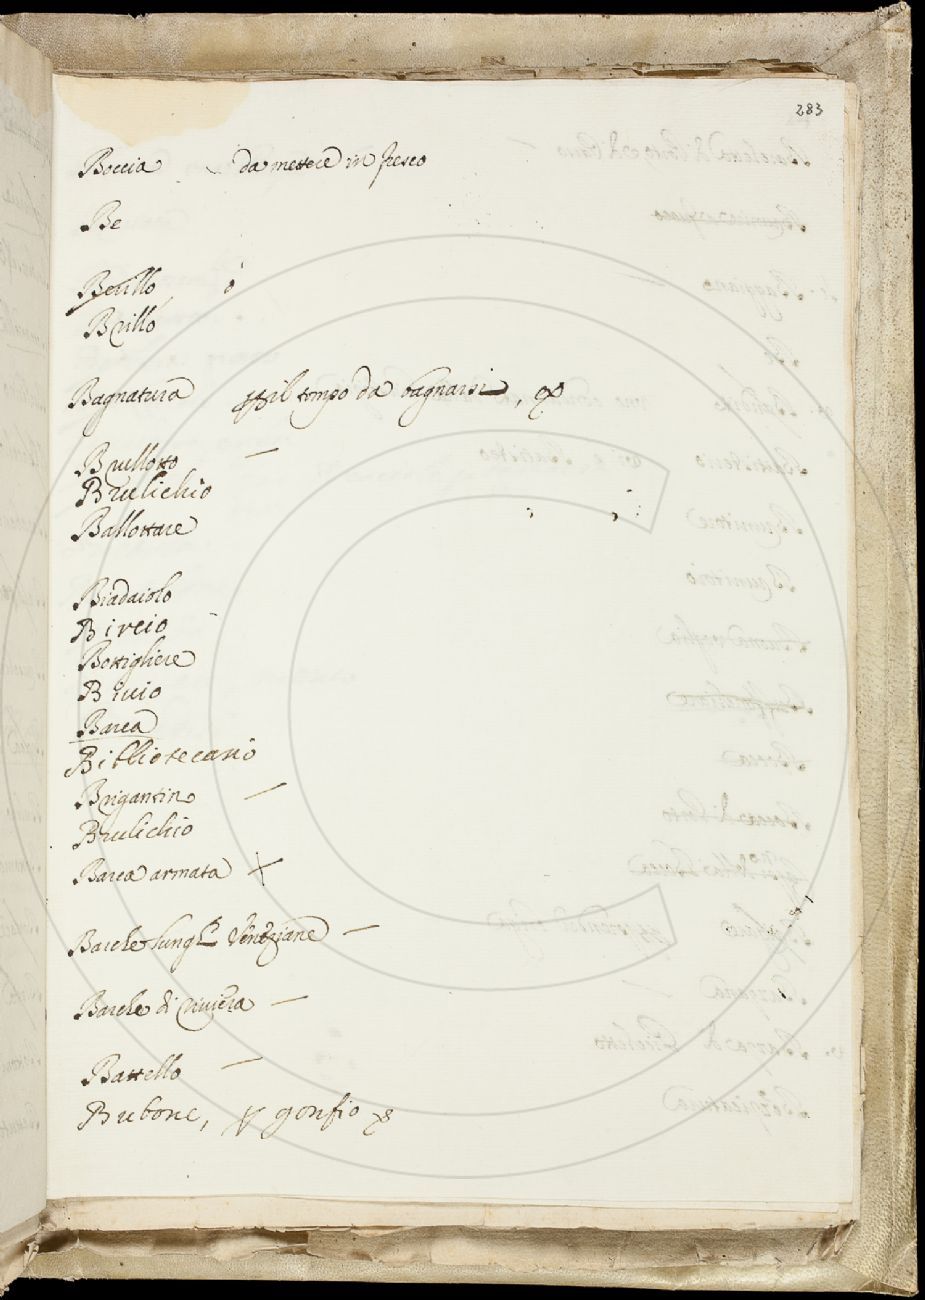 283
Boccia da mettere in fresco
Be
Berillo, ò
Brillo
Bagnatura il tempo da bagnarsi,
Brullotto —
Brulichio
Ballottare
Biadaiolo
Bircio
Bottigliere
Bivio
Barca
Bibliotecario
Brigantino —
Brulichio
Barca armata X
Barche lunghe Veneziane —
Barche di riviera —
Battello —
Bubone, gonfio